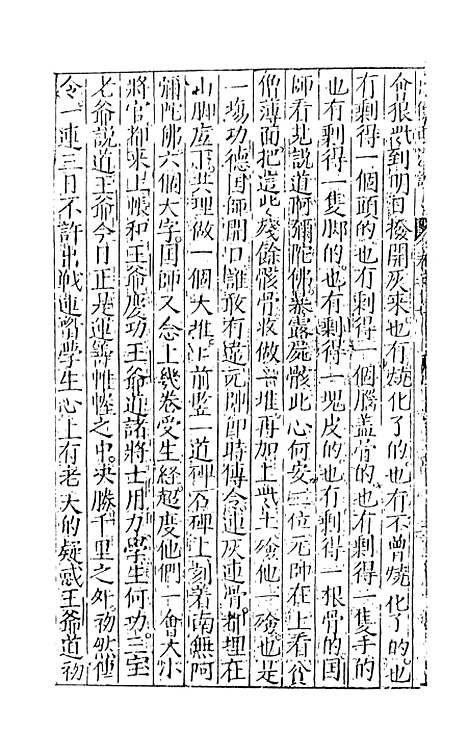 會狠哭到明日撥開灰來也有燒化了的也有不曾燒化了的也
有剩得一個頭的也有剩得一個腦盖骨的也有剩得一隻手的
也有剩得一隻脚的也有剩得一塊皮的也有剩得一根骨的国
師看見說道阿彌陀佛暴露屍骸此心何安二位元帥在上看貧
僧薄面把這些殘餘骸骨收做一堆再加上些土殮他一殮也是
一塲功德国師開口誰敢有違元帥即時傳令連灰連骨都埋在
山脚底下共理做一個大堆上前竪一道碑石碑上刻着南無阿
彌陀佛六個大字国師又念上幾卷受生經超度他們一會大小
將官都來上帳和王爺慶功王爺道諸將士用力學生何功三宝
老爺說道王爺今日正是運籌帷幄之中决勝千里之外初然傳
令一連三日不許出戰連我學生心上有老大的疑惑王爺道初